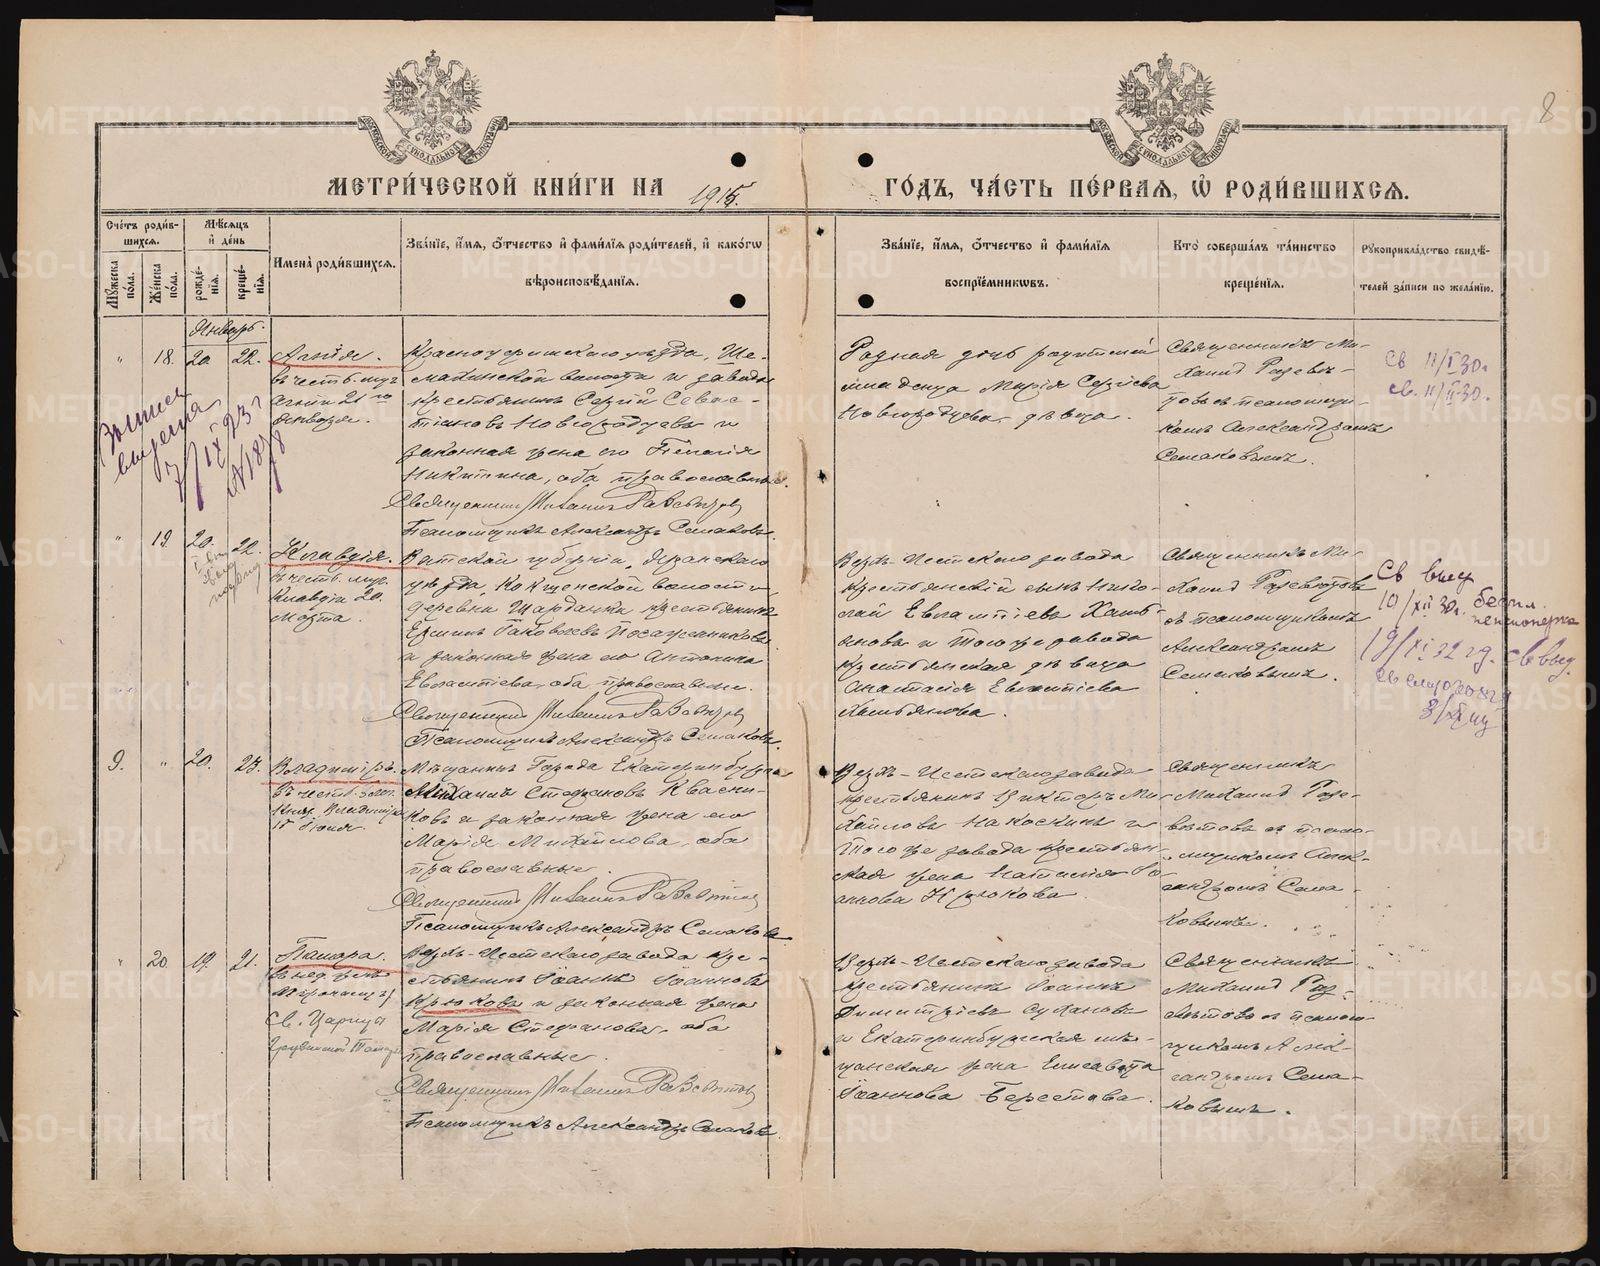 8
МЕТРИ́ЧЕСКОЙ КНИ́ГИ НА 1915.
ГО́ДЪ, ЧА́СТЬ ПЕ́РВАЯ, Ѡ҆ РОДИ́ВШИХСЯ.
Сче́тъ роди́в-
шихся.
Му́жеска по́ла.
Же́нска по́ла.
Мѣ́сяцъ
и҆ де́нь
рожде́-
нія.
креще́-
нія.
И҆мена̀ роди́вшихся.
Зва́нїе, и҆́мя, ѻ҆́тчество и҆ фами́лїя роди́телей, и҆ како́гѡ
вѣроисповѣ́данїя.
Зва́нїе, и҆́мя, ѻ҆́тчество и҆ фами́лїя
воспрїе́мниковъ.
Кто̀ соверша́лъ та́инство
креще́нїя.
Рꙋкоприкла́дство свидѣ́-
телей за́писи по жела́нїю.
Январь.
" 18. 20. 22. Агнія.
въ честь муч.
Агніи 21го
января.
Красноуфимскаго уѣзда, Ше-
махинской волости и завода
крестьянинъ Сергій Севас-
тіановъ Новгородцевъ и
законная жена его Пелагія
Никитина, оба православные.
Священникъ Михаилъ Развѣтовъ
Псаломщикъ Александръ Семаковъ
Родная дочь родителей
младенца Марія Сергіева
Новгородцева дѣвица.
Священникъ Ми-
хаилъ Развѣ-
товъ съ псаломщи-
комъ Александромъ
Семаковымъ.
Св 11/I 30г.
Св. 11/II-30.
Выписка
выдана
7/IX 23 г
№ 1878
" 19. 20. 22. Клавдія.
въ честь муч.
Клавдіи 20.
марта.
Вятской губерніи, Яранскаго
уѣзда, Кокшенской волости
деревни Шарданка крестьянинъ
Ефимъ Іаковлевъ Посаженниковъ
и законная жена его Антонина
Евгентіева, оба православные.
Священникъ Михаилъ Развѣтовъ
Псаломщикъ Александръ Семаковъ.
Верхъ-Исетскаго завода
крестьянскій сынъ Нико-
лай
и того же завода
крестьянская дѣвица
Анастасія
Священникъ Ми-
хаилъ Развѣтовъ
съ псаломщикомъ
Александромъ
Семаковымъ.
Св выд
10/XII 30г.
пенсионерка
19/XI 32 г. св выд.
9. " 20. 23. Владиміръ.
въ честь
Князя Владиміра
15 Іюля.
Мѣщанинъ Города Екатеринбурга
Михаилъ Стефановъ Квасни-
ковъ и законная жена его
Марія Михайлова, оба
православные.
Священникъ Михаилъ Развѣтовъ
Псаломщикъ Александръ Семаковъ
Верхъ-Исетскаго завода
крестьянинъ Викторъ Ми-
хайловъ Накоскинъ и
того же завода крестьян-
ская жена Наталія Іо-
аннова Крюкова.
Священникъ
Михаилъ Раз-
вѣтовъ съ псало-
мщикомъ Алек-
сандромъ Сема-
ковымъ.
" 20. 19. 21. Тамара.
Св. Царицы
Грузинской Тамары
Верхъ-Исетскаго завода кре-
стьянинъ Іоаннъ Іоанновъ
Крюковъ и законная жена
Марія Стефанова, оба
православные.
Священникъ Михаилъ Развѣтовъ
Псаломщикъ Александръ Семаковъ.
Верхъ-Исетскаго завода
крестьянинъ Іоаннъ
Димитріевъ Сухановъ
и Екатеринбургская мѣ-
щанская жена Елисавета
Іоаннова Берестова.
Священникъ
Михаилъ Раз-
вѣтовъ съ псалом-
щикомъ Алек-
сандромъ Сема-
ковымъ.
METRIKI.GASO-URAL.RU